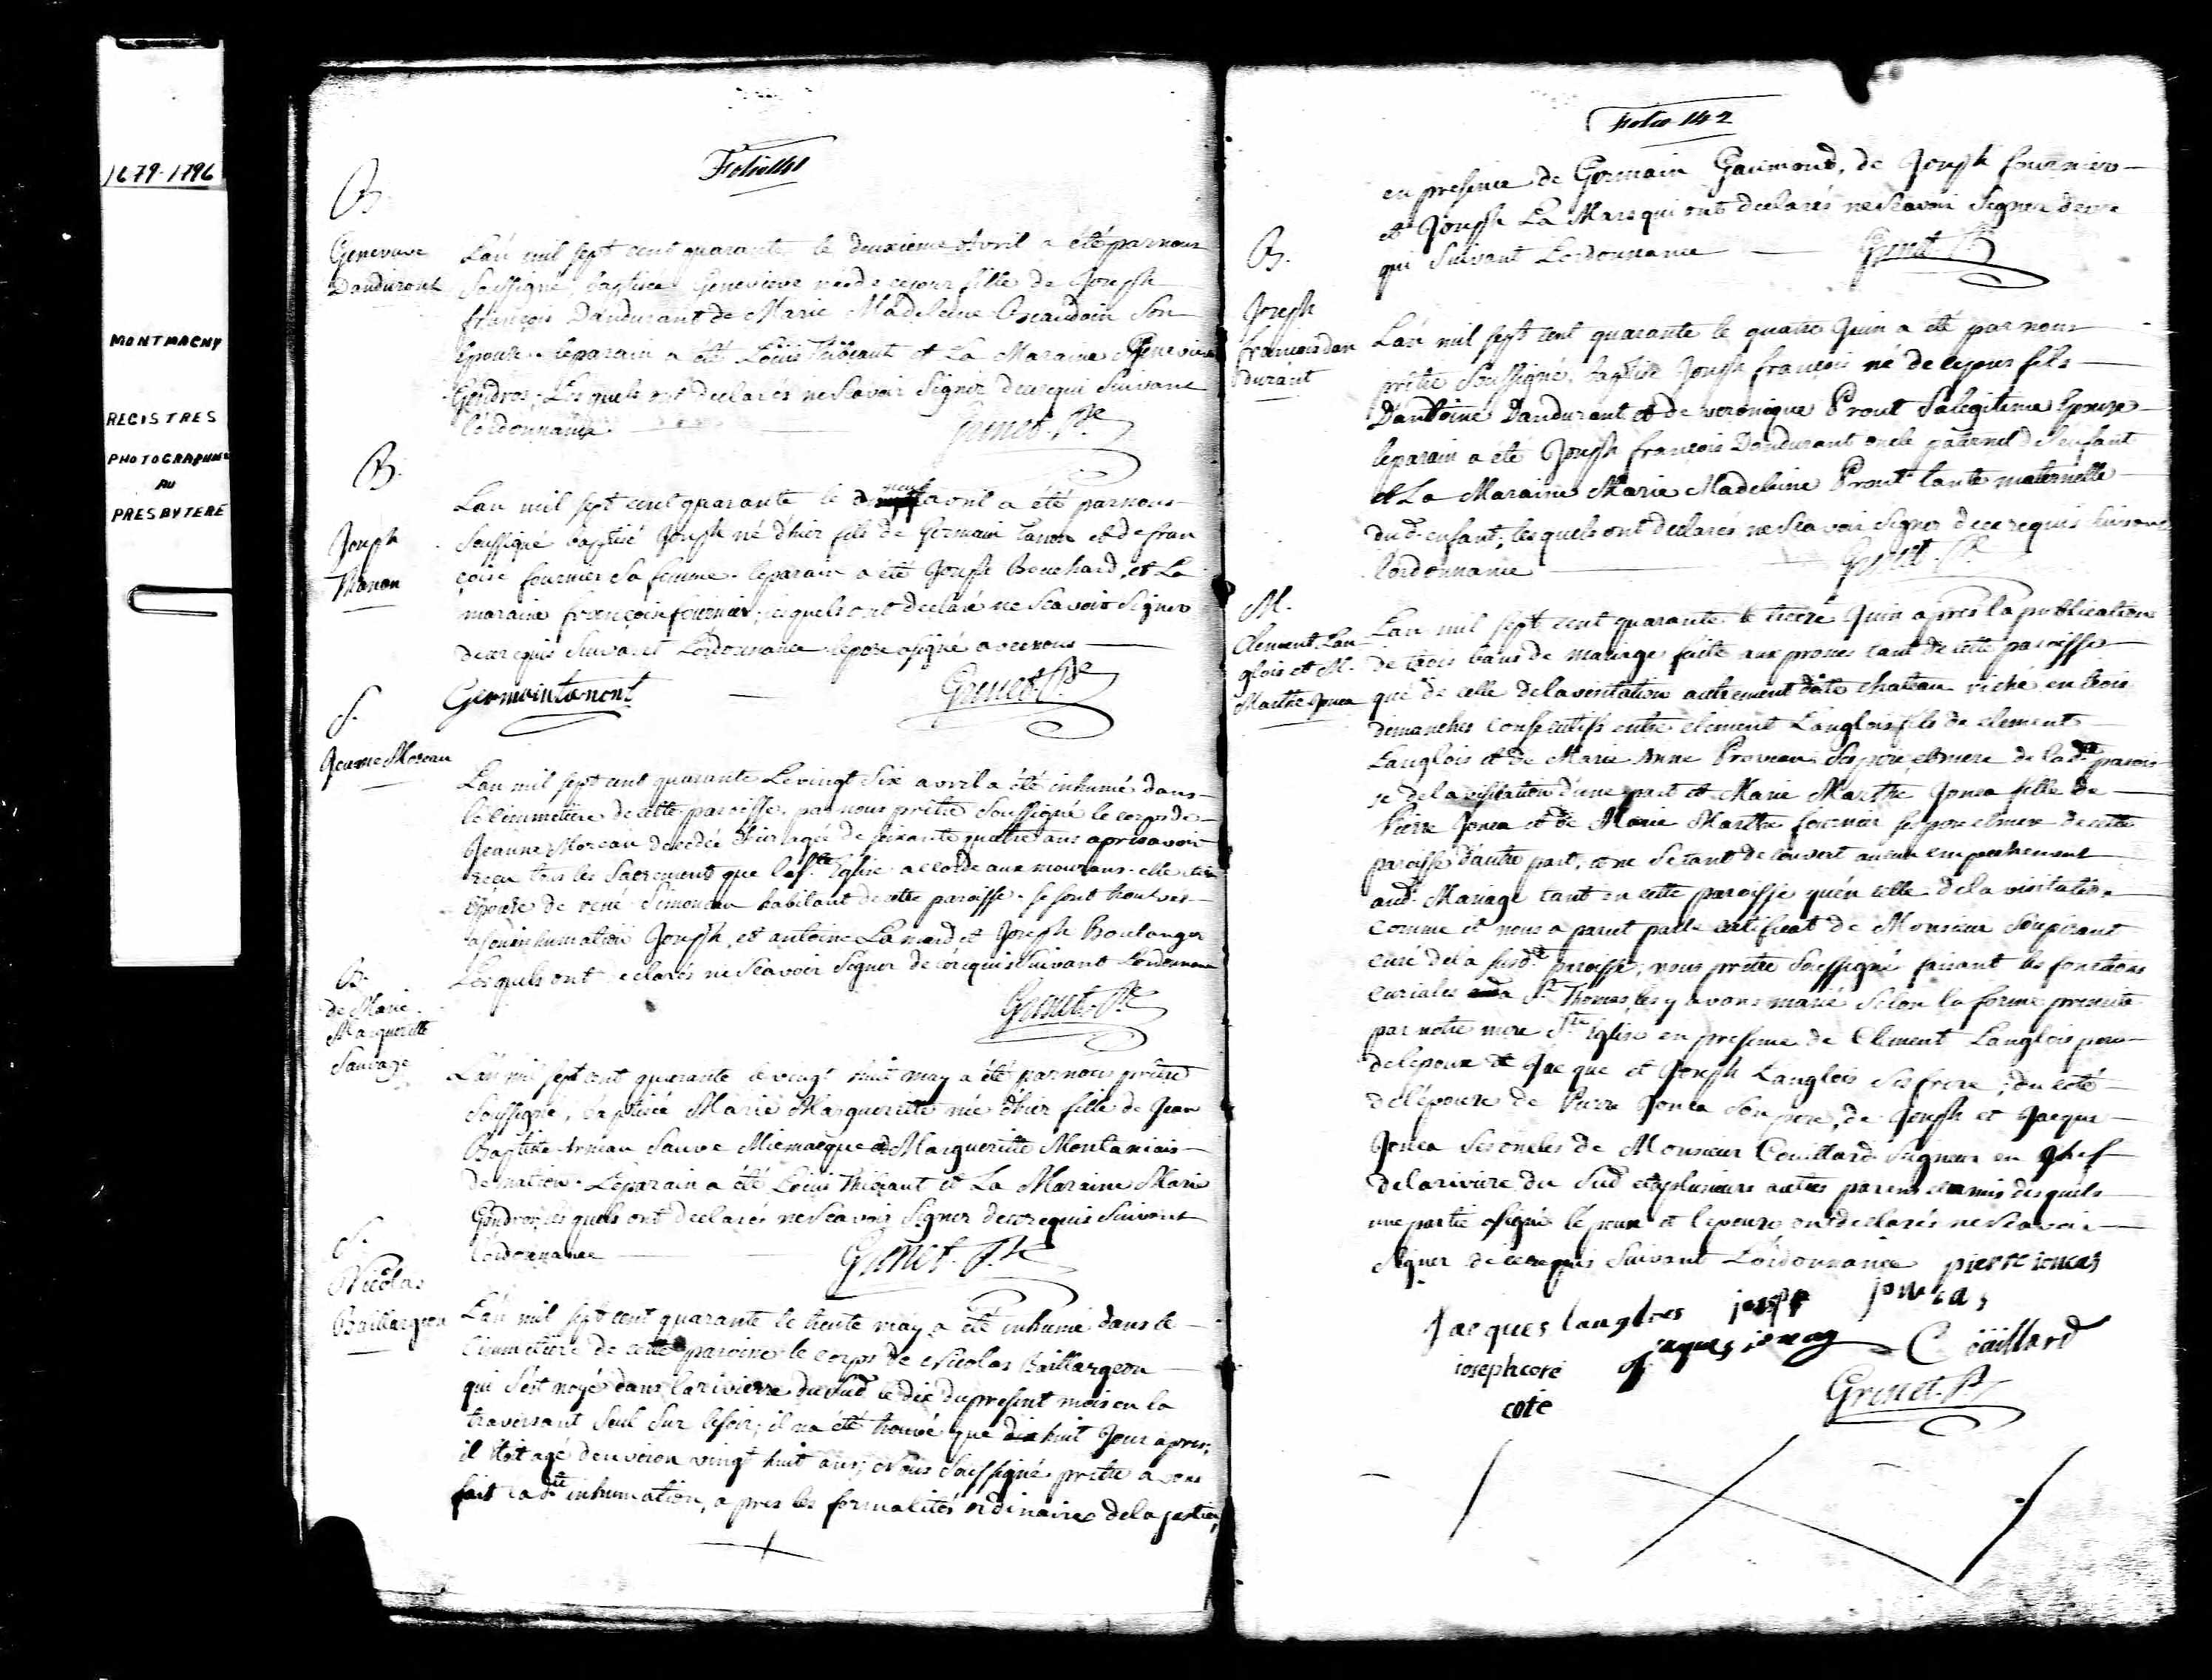 1679-1796
MONTMAGNY
REGISTRES
PHOTOGRAPHIÉS
AU
PRESBYTERE
Folio 141
B.
Genevieve
Dandurant
L'an mil sept cent quarante le deuxieme Avril a été par nous
Soussigné, baptisée Genevieve née de ce jour fille de Joseph
françois Dandurant de Marie Madeleine Beaudoin Son
Epouse. le parain a été Louis Thibeaut et La Maraine Genevieve
Gendros, Lesquels ont declarés ne Scavoir Signer de ce requi Suivant
l'ordonnance Grenet Ptre
B.
Joseph
Thanon
L'an mil sept cent quarante le neuf avril a été par nous
Soussigné baptisé Joseph né d'hier fils de Germain Tanon et de fran
çoise fournier Sa femme. le parain a été Joseph Bouchard, et La
maraine françoise fournier, lesquels ont declaré ne Scavoir Signer
de ce requis Suivant L'ordonnance le pere a signé avec nous
Germain tanont Grenet Ptre
S.
Jeanne Moreau
L'an mil sept cent quarante Le vingt Six avril a été inhumé dans
le cimmetiere de cette paroisse. par nous prêtre Soussigné le corps de
Jeanne Moreau decedée d'hier agée de soixante quatre ans apres avoir
reçu tous les Sacremens que la Ste Eglise accorde aux mourans. elle etoit
Epouse de rené Simoneau habitant de cette paroisse. se sont trouvés
a son inhumation Joseph, et antoine Lamard et Joseph Boulanger
Lesquels ont declarés ne Scavoir Signer de ce requis Suivant L'ordonnance
Grenet Ptre
B.
de Marie
Marguerite
Sauvage
L'an mil sept cent quarante le vingt huit may a été par nous prêtre
Soussigné, baptisée Marie Marguerite née d'hier fille de Jean
Baptiste Sauve Micmacque et Marguerite Montaniais
de nation. Le parain a été Louis Thibeaut et La Maraine Marie
Gendros, lesquels ont declarés ne Scavoir Signer de ce requis Suivant
l'ordonnance Grenet Ptre
S.
Nicolas
Baillargeon
L'an mil sept cent quarante le trente may a été inhumé dans le
Cimmetiere de cette paroisse le corps de Nicolas Baillargeon
qui s'est noyé dans la rivierre du Sud le dix du present mois en la
traversant Seul Sur le soir; il na été trouvé que dix huit Jour apres,
il étoit agé d'environ vingt huit ans; Nous Soussigné prêtre avons
fait la dte inhumation, apres les formalités ordinaires de la justice,
Folio 142
en presence de Germain Gaumond, de Joseph fournier
et Joseph La Mare qui ont declarés ne Scavoir Signer de ce
qui Suivant L'ordonnance Grenet Ptre
B.
Joseph
francois dan
durant
L'an mil sept cent quarante le quatre Juin a été par nous
prêtre Soussigné, baptisé Joseph françois né de ce jour fils
D'antoine Dandurant et de veronique Prout Sa legitime Epouse
le parain a été Joseph françois Dandurant oncle paternel de l'enfant
et La Maraine Marie Madeleine Prout tante maternelle
du d. enfant; lesquels ont declarés ne Scavoir Signer de ce requis suivant
l'ordonnance Grenet Ptre
M.
Clement Lan
glois et M.
Marthe Jonca
L'an mil sept cent quarante le Juin apres la publication
de trois bans de mariage faite aux prones tant de cette paroisse
que de celle de la visitation autrement dite chateau riché en trois
dimanches consecutifs entre clement Langlois fils de clement
Langlois et de Marie Anne Proveau Ses pere et mere de la dte parois
se de la visitation d'une part et Marie Marthe Jonca fille de
Pierre Jonca et de Marie Marthe fournier ses pere et mere de cette
paroisse d'autre part, et ne S'etant decouvert aucun empechement
au d. Mariage tant en cette paroisse qu'en celle de la visitation
comme il nous a parut par le certificat de Monsieur Soupirant
curé de la susdte paroisse, nous prêtre Soussigné faisant les fonctions
curiales a St Thomas, les y avons marié Selon la forme prescrite
par notre mere Ste Eglise en presence de Clement Langlois pere
de l'epoux et Jacque et Joseph Langlois Ses frere; du coté
de l'épouse de Pierre Jonca Son pere, de Joseph et Jacque
Jonca Ses oncles de Monsieur Couillard Seigneur en chef
de la riviere du Sud et plusieurs autres parens et amis desquels
une partie a signé l'epoux et l'epouse ont declarés ne Scavoir
Signer de ce requis Suivant L'ordonnance pierre ioncas
Jacques langlois joseph joncas
ioseph coté jaques ioncas Coüillard
coté Grenet Ptre